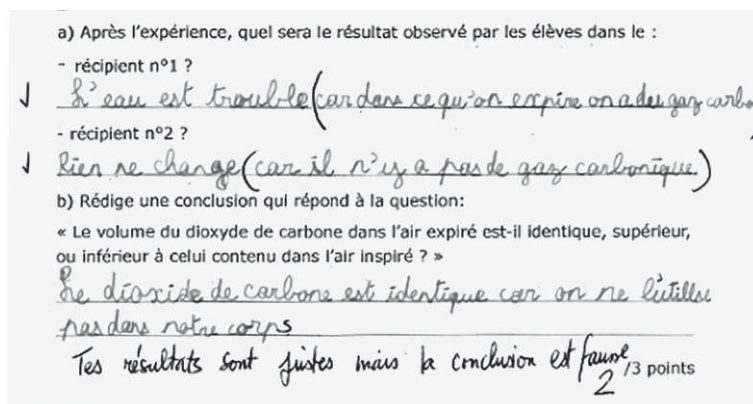 a) Après l'expérience, quel sera le résultat observé par les élèves dans le :
- récipient n°1 ?
L'eau est trouble (car dans ce qu'on expire on a du gaz carbo
- récipient n°2 ?
Rien ne change (car il n'y a pas de gaz carbonique.)
b) Rédige une conclusion qui répond à la question:
« Le volume du dioxyde de carbone dans l'air expiré est-il identique, supérieur,
ou inférieur à celui contenu dans l'air inspiré ? »
Le dioxide de carbone est identique car on ne l'utilise
pas dans notre corps
Tes résultats sont justes mais la conclusion est fausse
2 /3 points